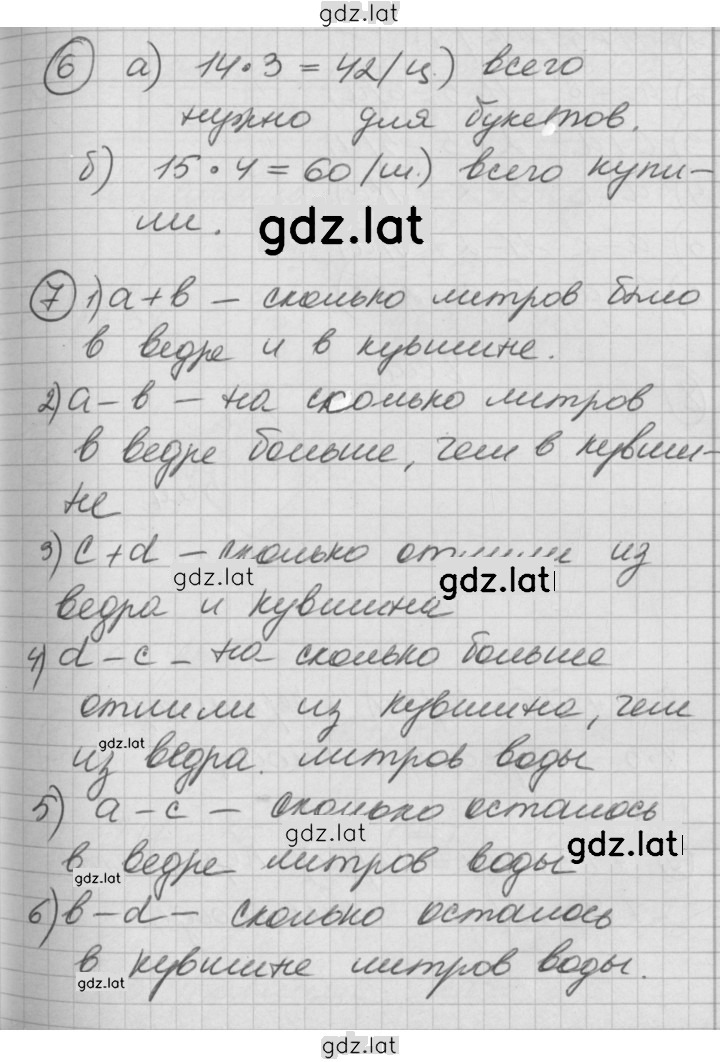 gdz.lat
6 а) 14·3 = 42 (ц.) всего
нужно для букетов.
б) 15·4 = 60 (ш.) всего купи-
ли.
gdz.lat
7 1) a + b – сколько литров было
в ведре и в кувшине.
2) a – b – на сколько литров
в ведре больше, чем в кувши-
не
3) c + d – сколько отлили из
gdz.lat
gdz.lat
ведра и кувшина
4) d – c – на сколько больше
отлили из кувшина, чем
gdz.lat
из ведра. литров воды
5) a – c – сколько осталось
gdz.lat
gdz.lat
в ведре литров воды
gdz.lat
6) b – d – сколько осталось
в кувшине литров воды.
gdz.lat
gdz.lat